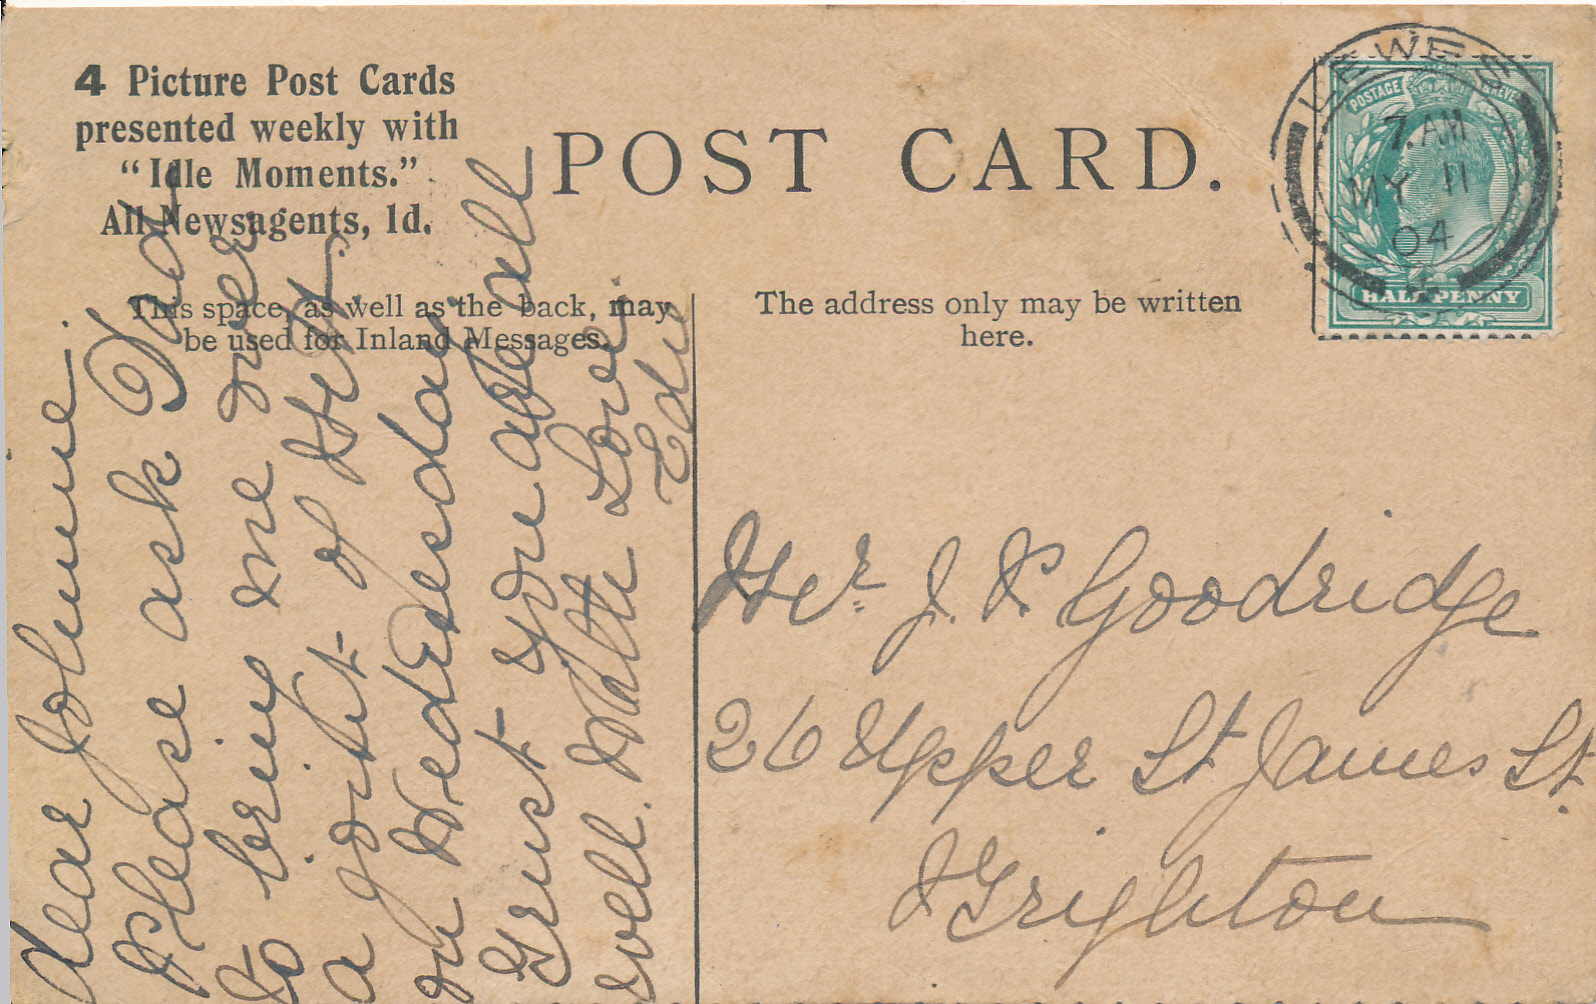 4 Picture Post Cards
presented weekly with
“Idle Moments.”
All Newsagents, 1d.
POST CARD.
This space, as well as the back, may
be used for Inland Messages.
The address only may be written
here.
LEWES
7. AM
MY 11
04
POSTAGE & REVE
HALFPENNY
dear Johnnie.
Please ask Dad
to bring me over
a joint of
on Wednesday.
Trust you are all
well. With Love
Edie
Mr. J. P Goodridge
26 Upper St James St.
Brighton